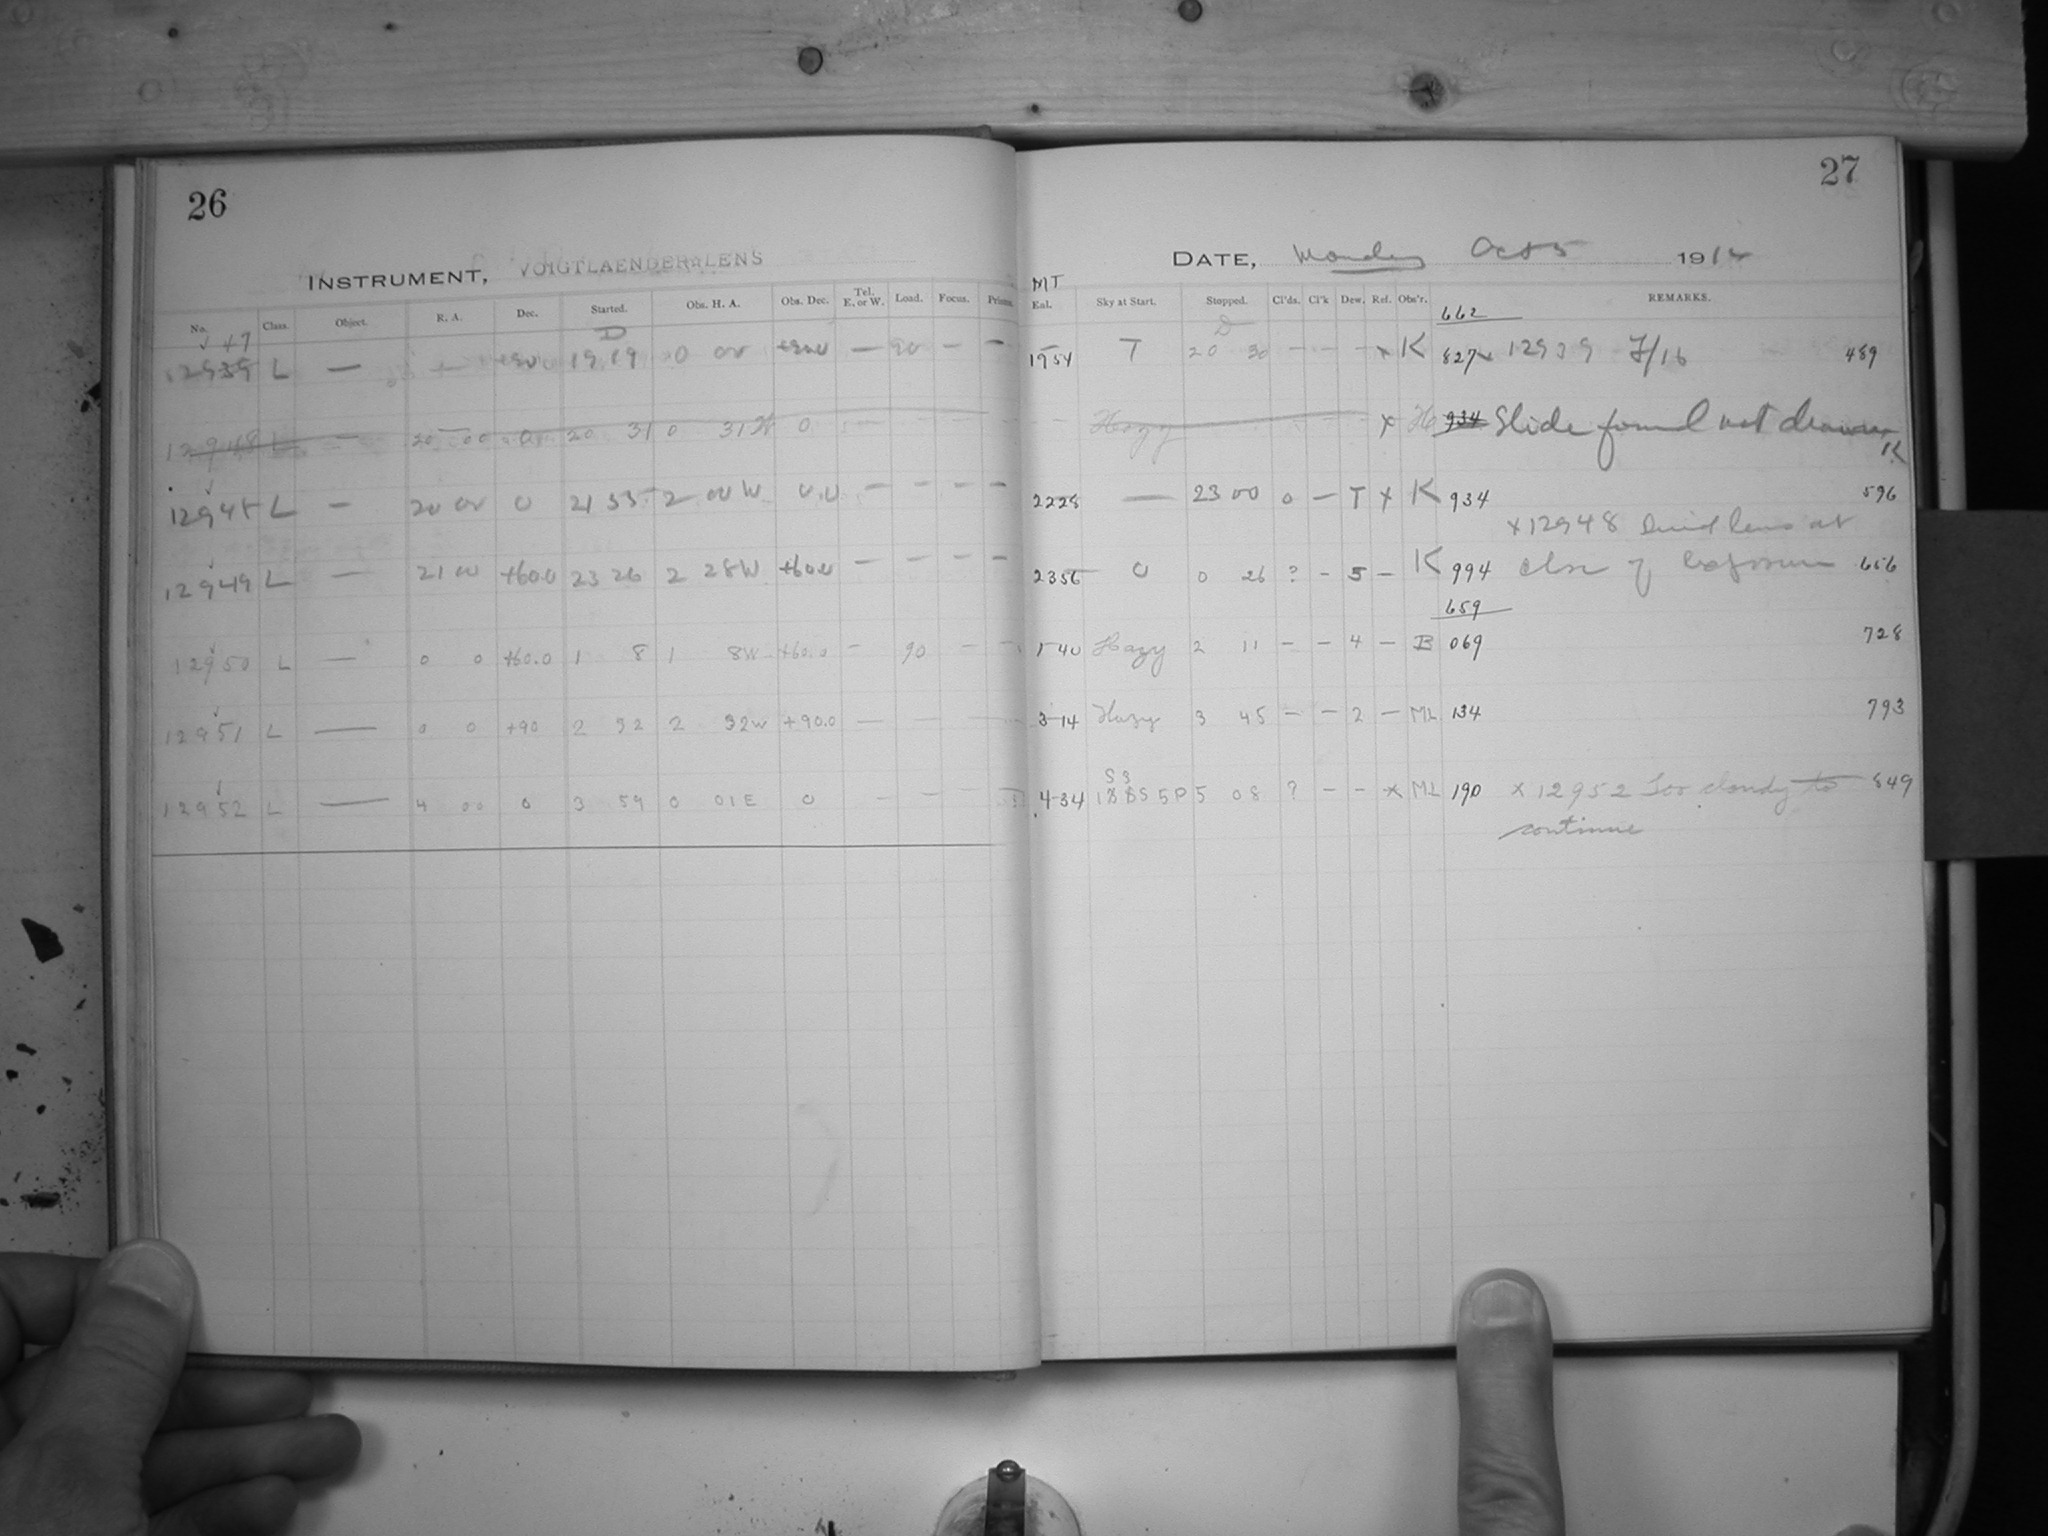 26
INSTRUMENT, VOIGTLAENDER LENS
No. Class. Object. R. A. Dec. Started. Obs. H. A. Obs. Dec. Tel. E. or W. Load. Focus.
+7 D
12939 L — 19 19 0 00 — 90 — —
12948 L — 20 00 0 20 31 0 31 W 0
12945 L — 20 00 0 21 55 2 00 W 0.0 — — — —
12949 L — 21 00 +60.0 23 26 2 28W +60.0 — — — —
12950 L — 0 0 +60.0 1 8 1 8W +60.0 — 90 — —
12951 L — 0 0 +90 2 32 2 32W +90.0 —
12952 L — 4 00 0 3 59 0 01E 0 — — —
27
DATE, Monday Oct 5 1914
MT
Eal. Sky at Start. Stopped. Cl'ds. Cl'k Dew. Ref. Obs'r. REMARKS.
662
1954 T 20 30 — — — x K 827 x 12939 F/16 489
Hazy — x H 934 Slide found not drawn
K
2228 — 23 00 0 — T x K 934 596
x12948 Dewed lens at
2356 0 0 26 ? — 5 — K 994 close of exposure 656
659
1 40 Hazy 2 11 — — 4 — B 069 728
3-14 Hazy 3 45 — — 2 — ML 134 793
S3
4-34 5P 5 08 ? — — x ML 190 x 12952 Too cloudy to 849
continue